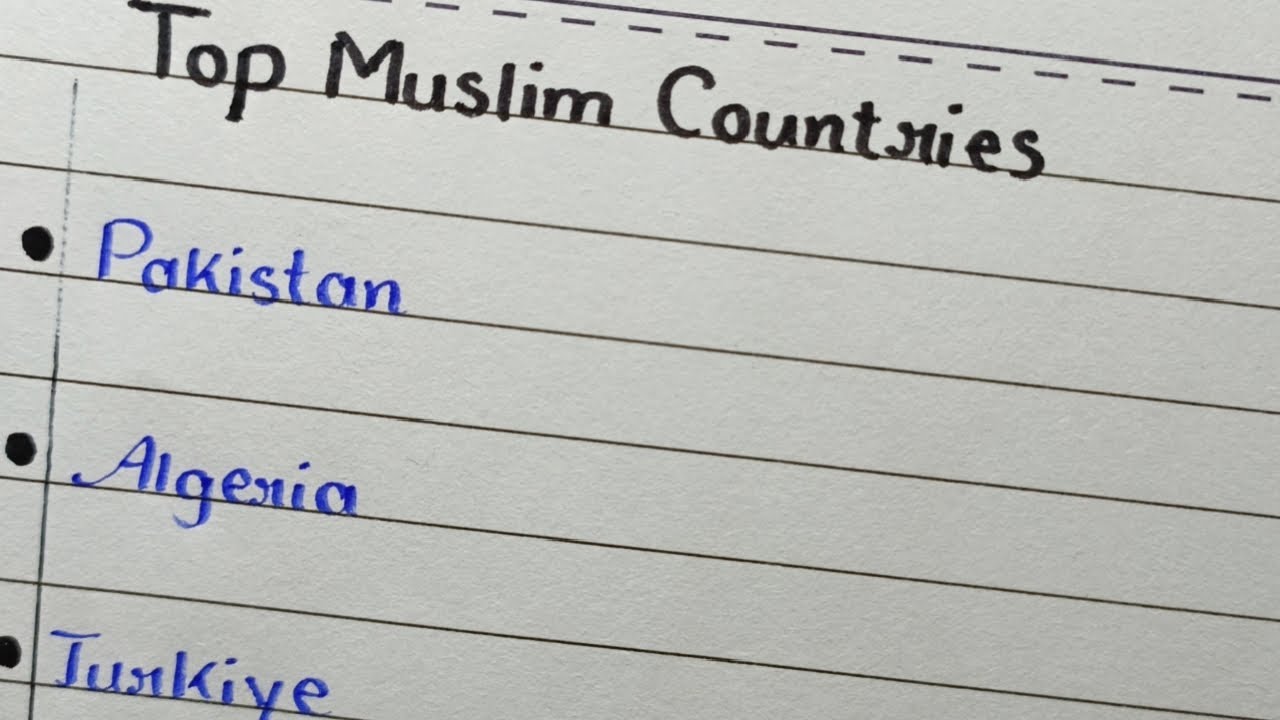 Top Muslim Countries
• Pakistan
• Algeria
• Turkiye